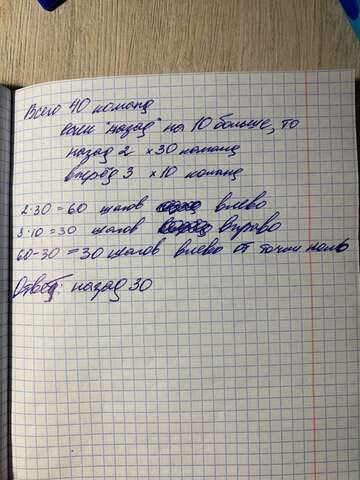 Всего 40 команд
если "назад" на 10 больше, то
назад 2 x 30 команд
вперёд 3 x 10 команд
2·30 = 60 шагов влево
3·10 = 30 шагов вправо
60-30 = 30 шагов влево от точки ноль
Ответ: назад 30